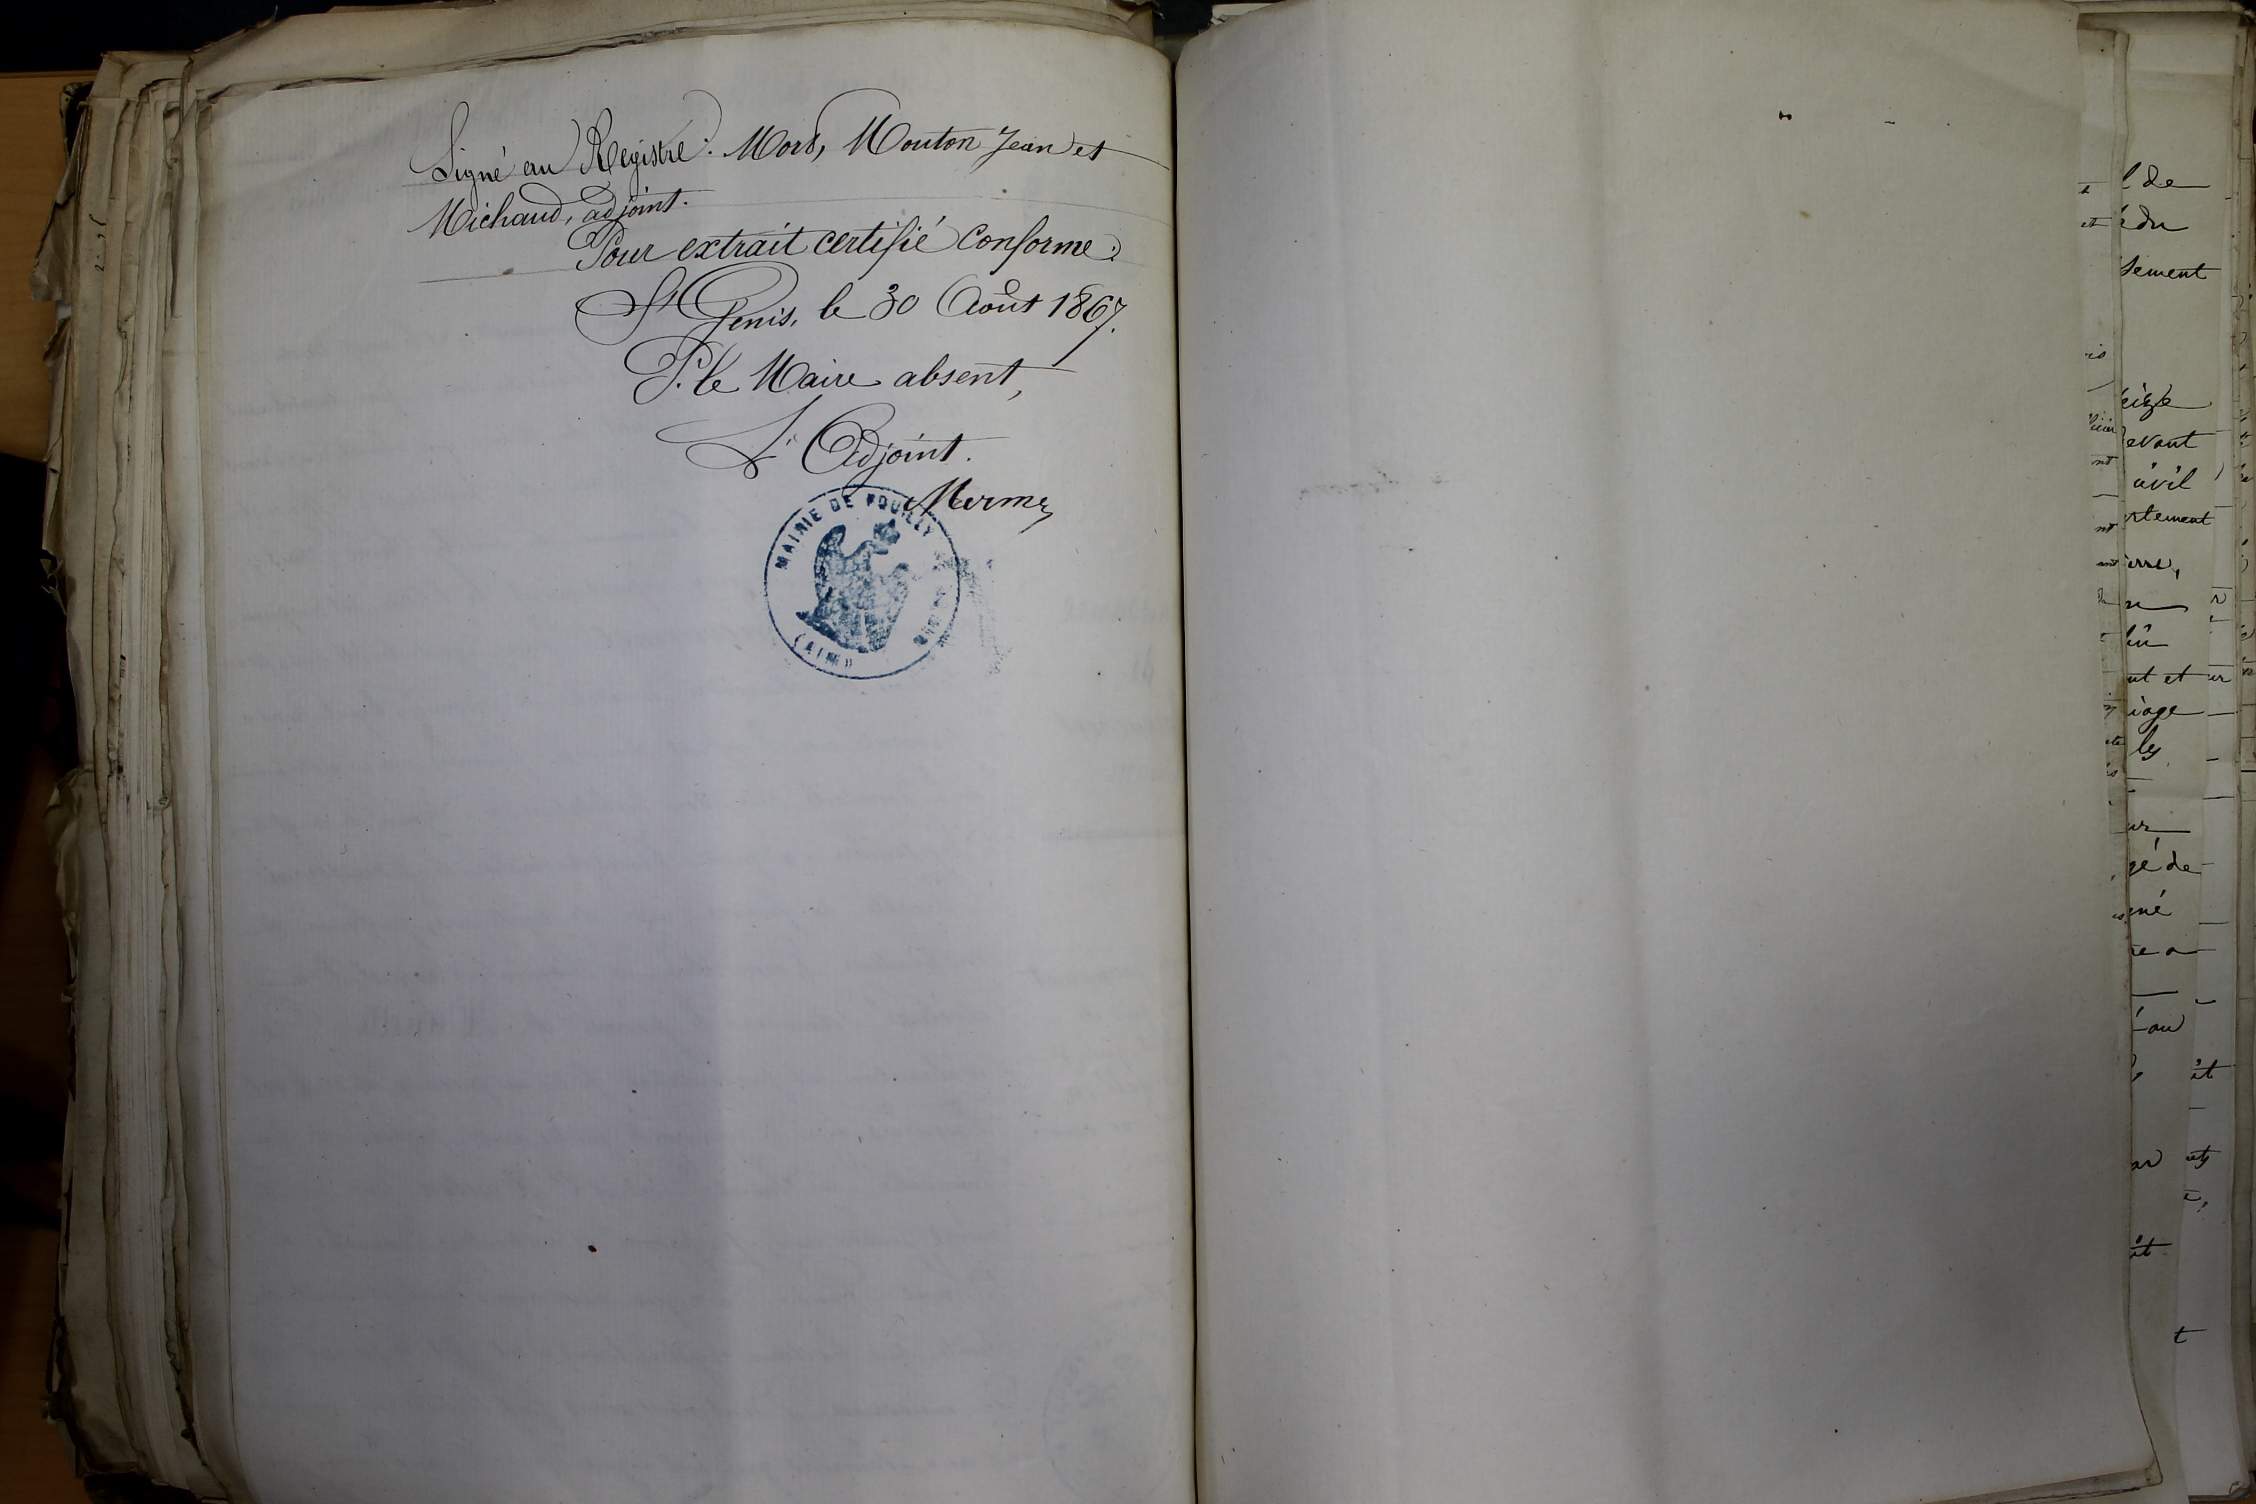 Signé au Registre: Mord, Mouton Jean et
Michaud, adjoint.
Pour extrait certifié conforme:
St Genis, le 30 Août 1867.
P. le Maire absent,
L'Adjoint.
Mermey
MAIRIE DE POUILLY
(AIN)
l de
du
sement
eize
evant
civil
rtement
erre,
ut et
iage
les
gé de
gné
au